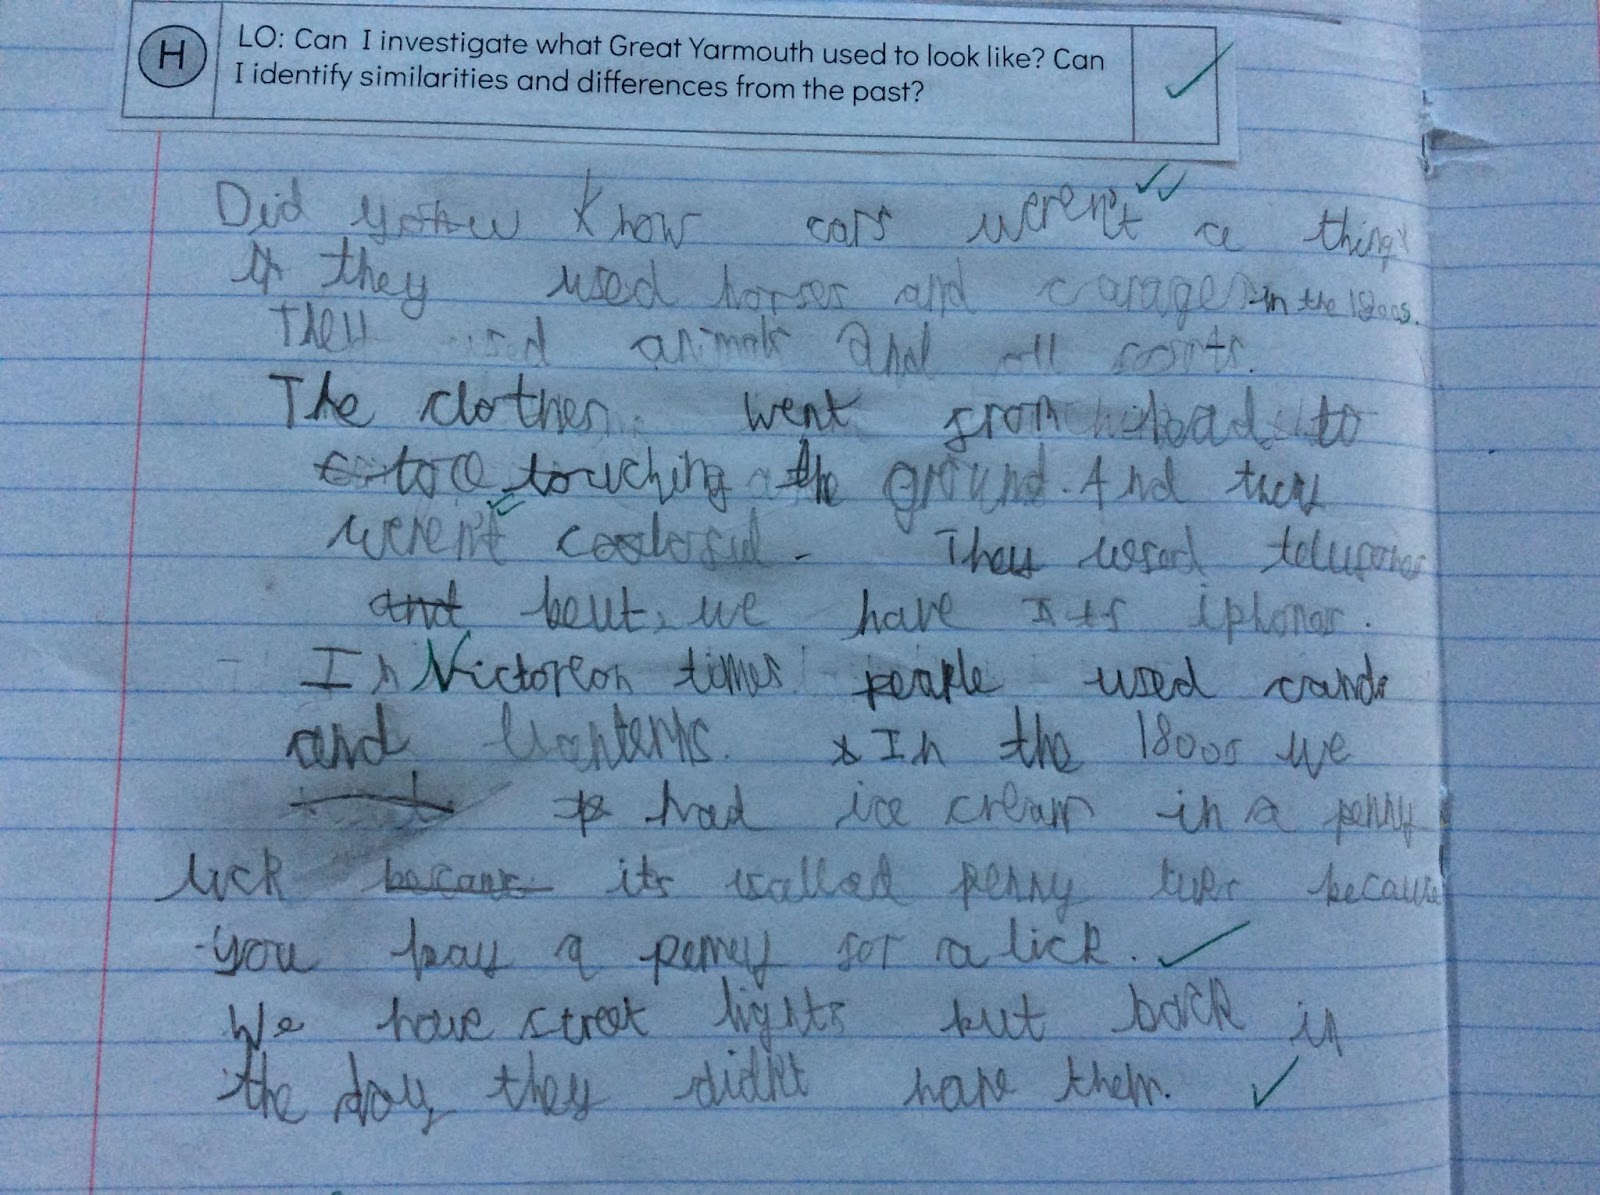 H
LO: Can I investigate what Great Yarmouth used to look like? Can
I identify similarities and differences from the past?
Did you know cars weren't a thing
they used horses and carages in the 1800s.
They used animals and all soorts.
The clothes went from head to
touching the ground. And they
weren't coolerful. They used telupones
and beut, we have iphones.
In Victoreon times peaple used cands
and lranterns. In the 1800s we
had ice cream in a penny
lick becaus its called penny because
you pay a penney for a lick.
We have street lights but back in
the day they didn't have them.